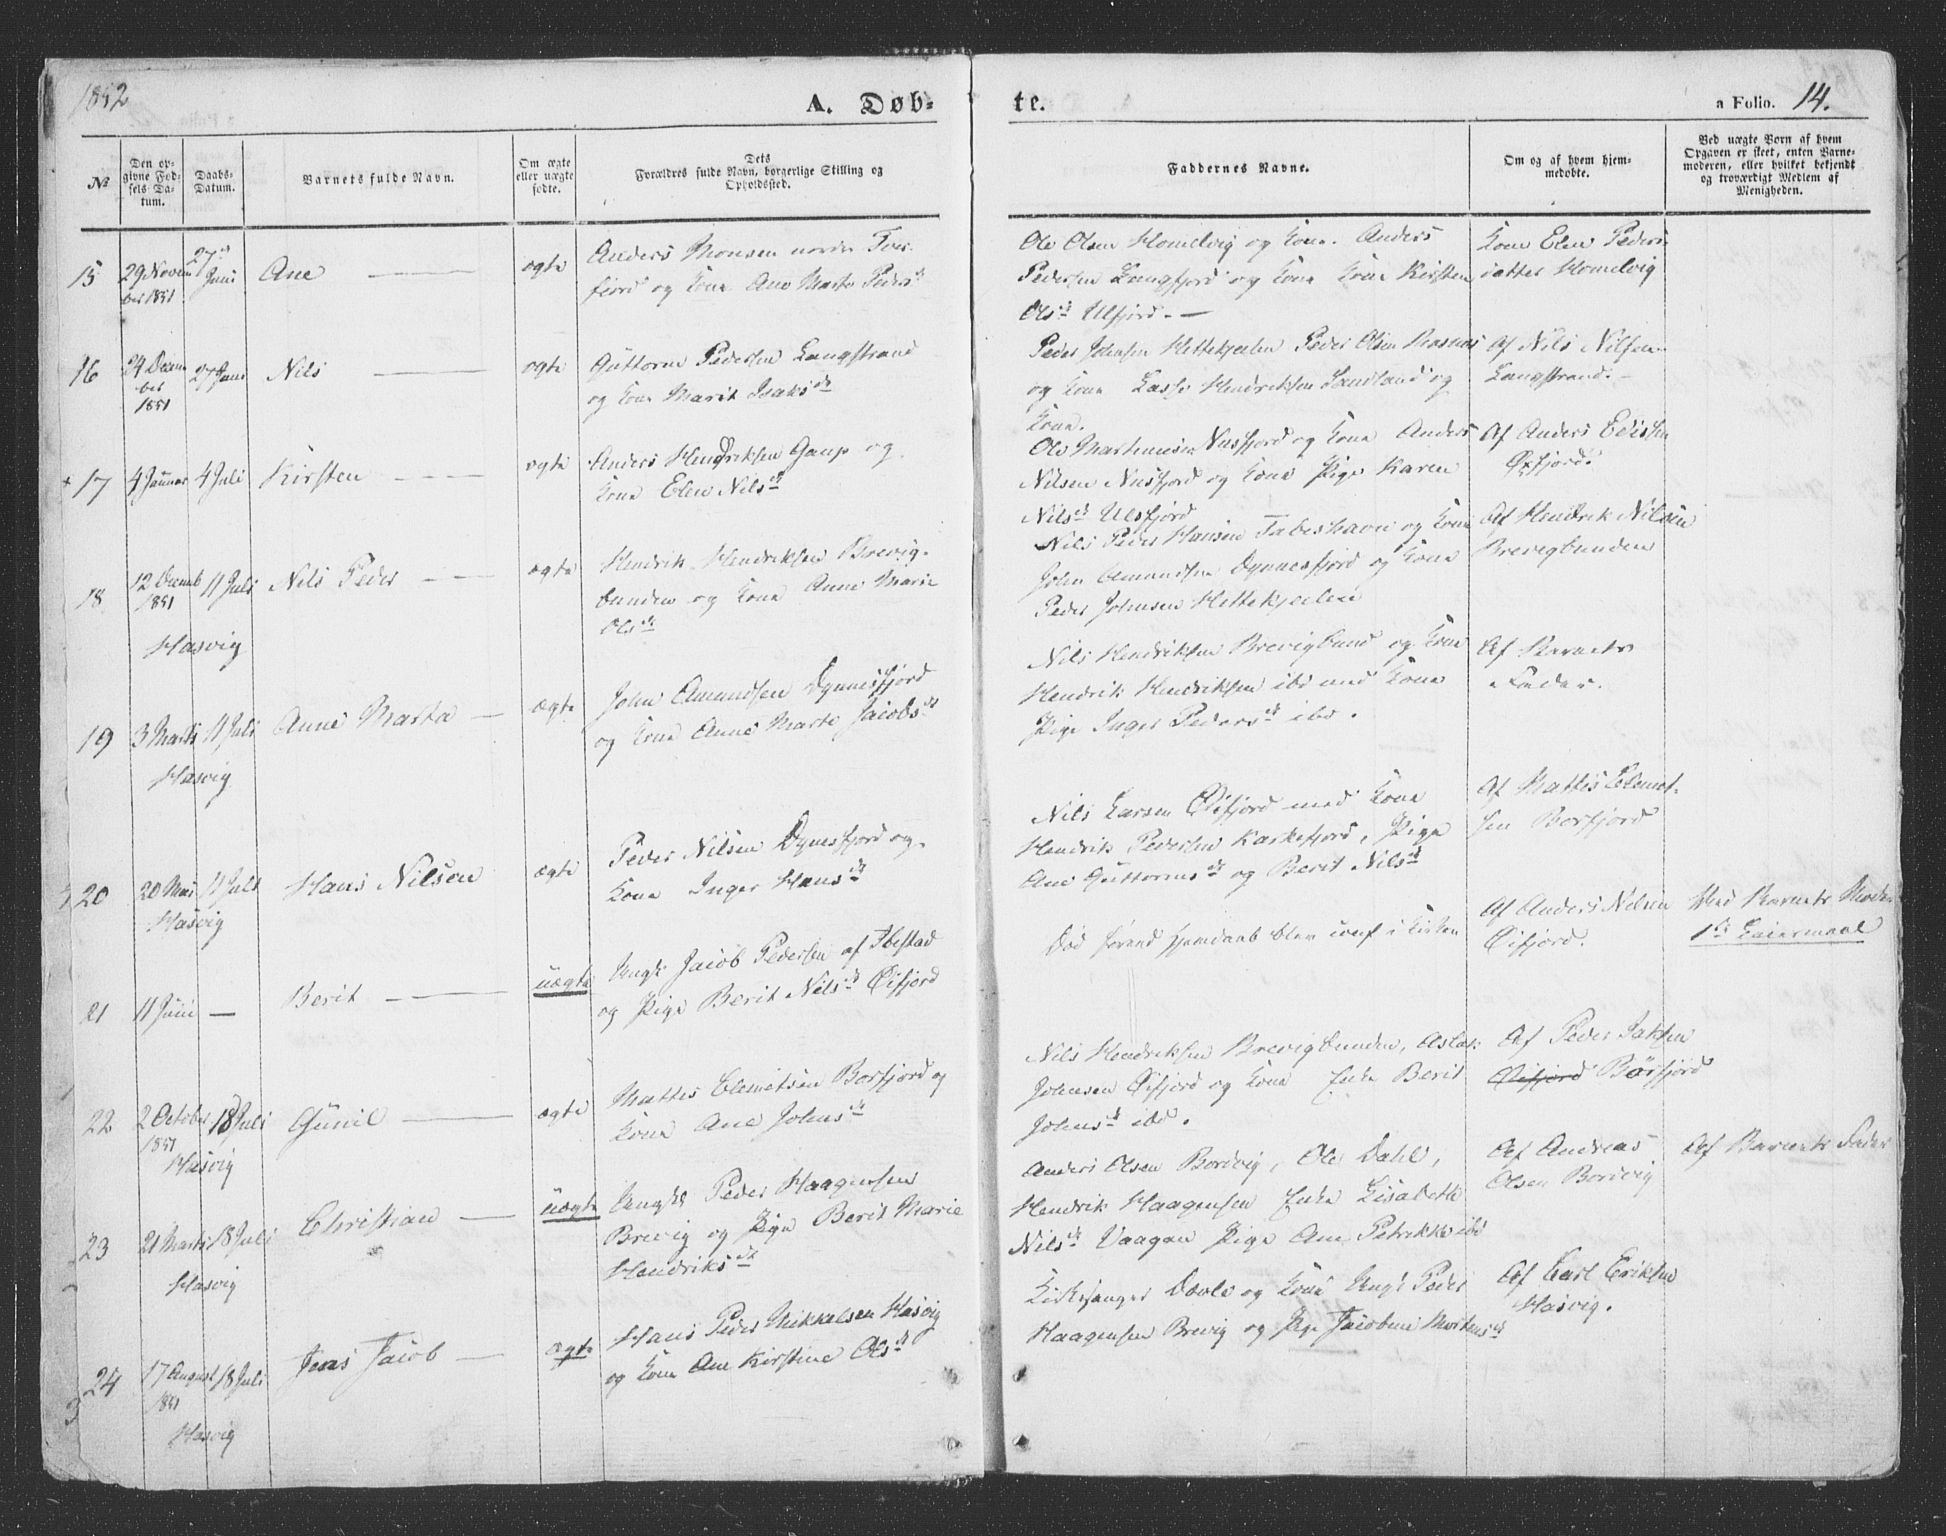 1852
A. Døb-
te.
a Folio. 14.
№
Den opgivne Fødsels Datum.
Daabs-Datum.
Barnets fulde Navn.
Om ægte eller uægte fødte.
Dets Forældres fulde Navn, borgerlige Stilling og Opholdssted.
Faddernes Navne.
Om og af hvem hjemmedøbte.
Ved uægte Børn af hvem Opgaven er skeet, enten Barnemoderen, eller hvilket bekjendt og troværdigt Medlem af Menigheden.
15
29 Novem
ber 1851
27de
Juni
Ane
ægte
Anders Monsen nordre
fjord og Kone Ane Marte Peders D.
Ole Olsen Homelvig og Kone. Anders
Pedersen Langfjord og Kone Kirsten
Ols D. Ulfjord. —
Kone Elen Peders
datter Homelvig
16
24 Decem
ber
1851
27 Juni
Nils
ægte
Guttorm Pedersen Langstrand
og Kone Marit Isaks D.
Peder Johnsen Hettekjeilen Peder Olsen
og Kone Lasse Hendriksen Sandland og
Kone.
Af Nils Nilsen
Langstrand. —
17
4 Januar
4 Juli
Kirsten
ægte
Anders Hendriksen Gaup og
Kone Elen Nils D.
Ole Martinusen Nusfjord og Kone Anders
Nilsen Nusfjord og Kone Pige Karen
Nils D. Ulsfjord
Af Anders
Øxfjord.
18
12 Decemb
1851
11 Juli
Nils Peder
ægte
Hendrik Hendriksen Brevig-
bunden og Kone Anne Marie
Ols D.
Nils Peder Hansen Tabeshavn og Kone
John Amundsen Dynnesfjord og Kone
Peder Johnsen Hettekjeilen
Af Hendrik Nilsen
Brevigbunden
Hasvig
19
3 Marts
11 Juli
Anne Marta
ægte
John Amundsen Dynnesfjord
og Kone Anne Marte Jacobs D.
Nils Hendriksen Brevigbund og Kone
Hendrik Hendriksen ibd med Kone
Pige Inger Peders D. ibd.
Af Barnets
Fader.
Hasvig
20
30 Mai
11 Juli
Hans Nilsen
ægte
Peder Nilsen Dynesfjord og
Kone Inger Hans D.
Nils Larsen Øifjord med Kone
Hendrik Pedersen Karkefjord, Pige
Ane Guttorms D. og Berit Nils D.
Af Mattis Clemet-
sen Borfjord
Hasvig
21
11 Juni
—
Berit
uægte
Ungk Jacob Pedersen af Ibestad
og Pige Berit Nils D. Øifjord
Død førend Hjemdaab blev conf i Kirken
Af Anders Nilsen
Øifjord.
Ved Barnets Moder
1ste Leiermaal
22
2 October
1851
18 Juli
Gunil
ægte
Mattis Clemetsen Borfjord og
Kone Ane Johns D.
Nils Hendriksen Brevigbunden, Aslak
Johnsen Øifjord og Kone Enke Berit
Johns D. ibd.
Af Peder Isaksen
Øifjord Børfjord
Hasvig
23
21 Marts
18 Juli
Christian
uægte
Ungk Peder Haagensen
Brevig og Pige Berit Marie
Hendriks D.
Anders Olsen Bordvig, Ole Dahl,
Hendrik Haagensen Enke Lisabeth
Nils D. Vaagan Pige Ane Petrikke ibd
Af Andreas
Olsen Bordvig
Af Barnets Fader
Hasvig
24
17 August
1851
18 Juli
Jens Jacob
ægte
Hans Peder Mikkelsen Hasvig
og Kone Ane Kirstine Ols D.
Kirkesanger Davle og Kone Ungk Peder
Haagensen Brevig og Pige Jacobine Mortens D.
Af Carl Eriksen
Hasvig.
Hasvig